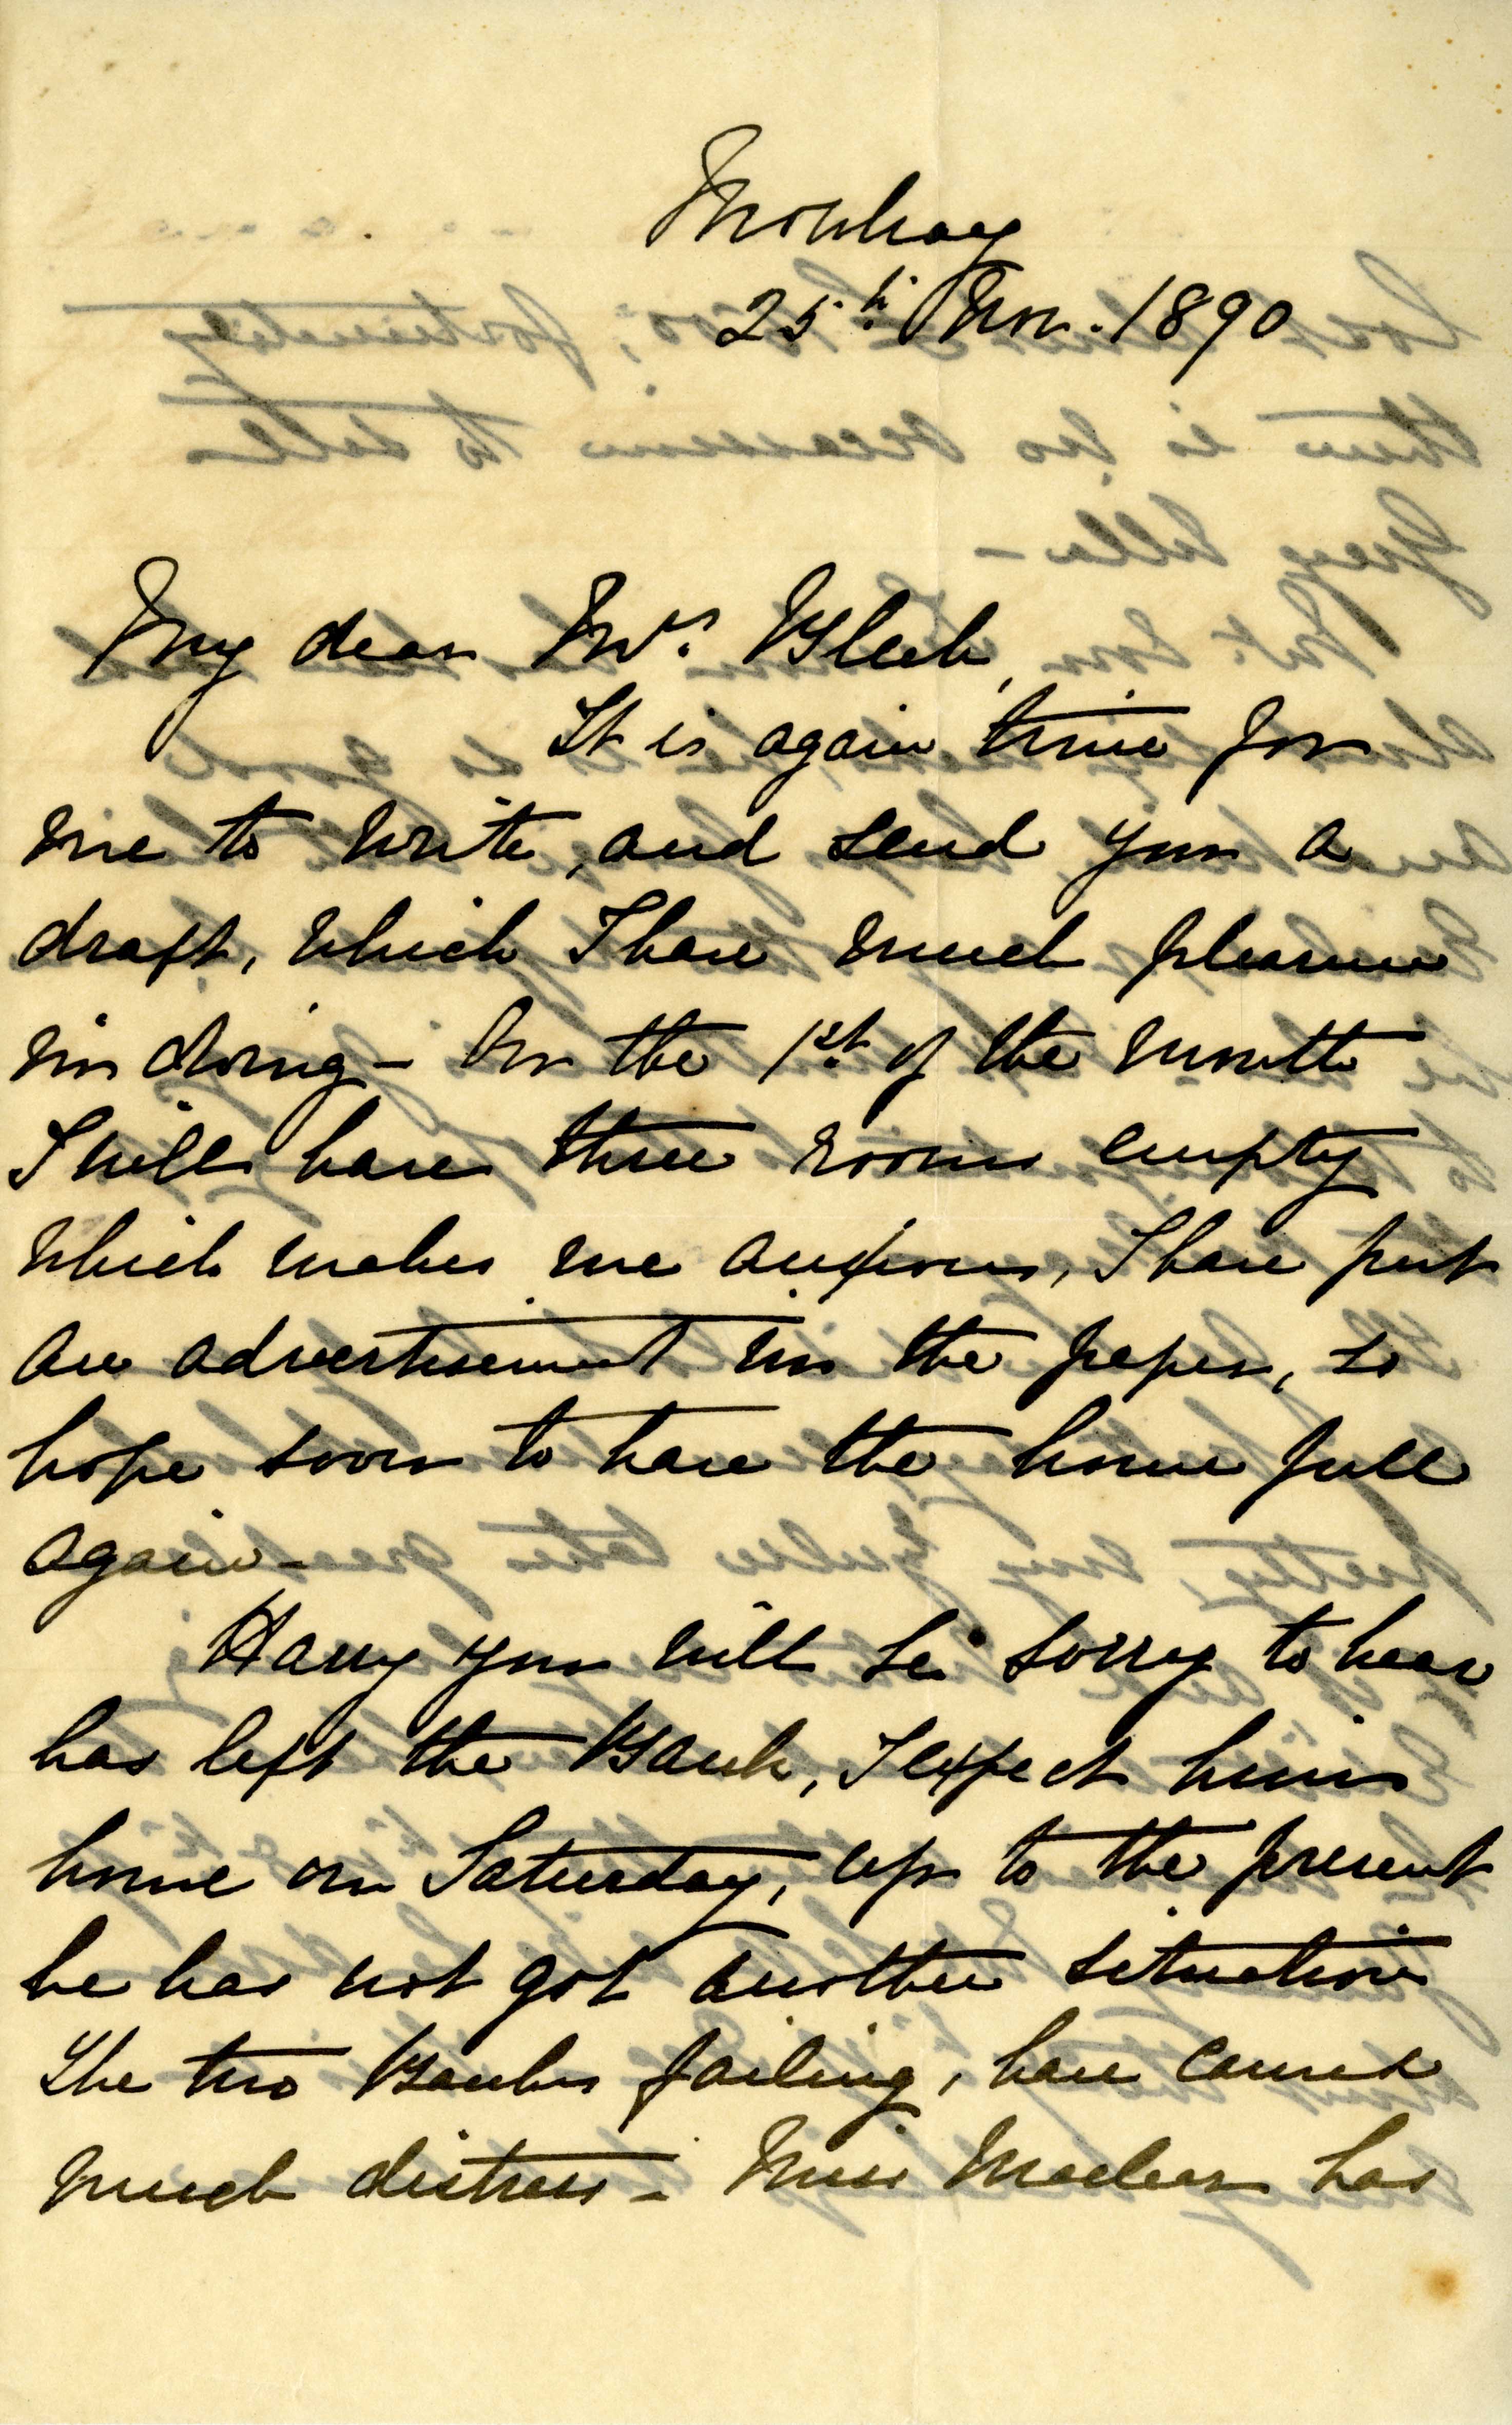 Mowbray
25th Nov. 1890
My dear Mrs Bleek,
It is again time for
me to write, and send you a
draft, which I have much pleasure
in doing - On the 1st of the month
I will have three rooms empty
which makes me anxious, I have put
an advertisement in the paper, so
hope soon to have the house full
again -
Harry you will be sorry to hear
has left the Bank, I expect him
home on Saturday, up to the present
he has not got another situation
The two Banks failing, have caused
much distress - Miss Maclear has